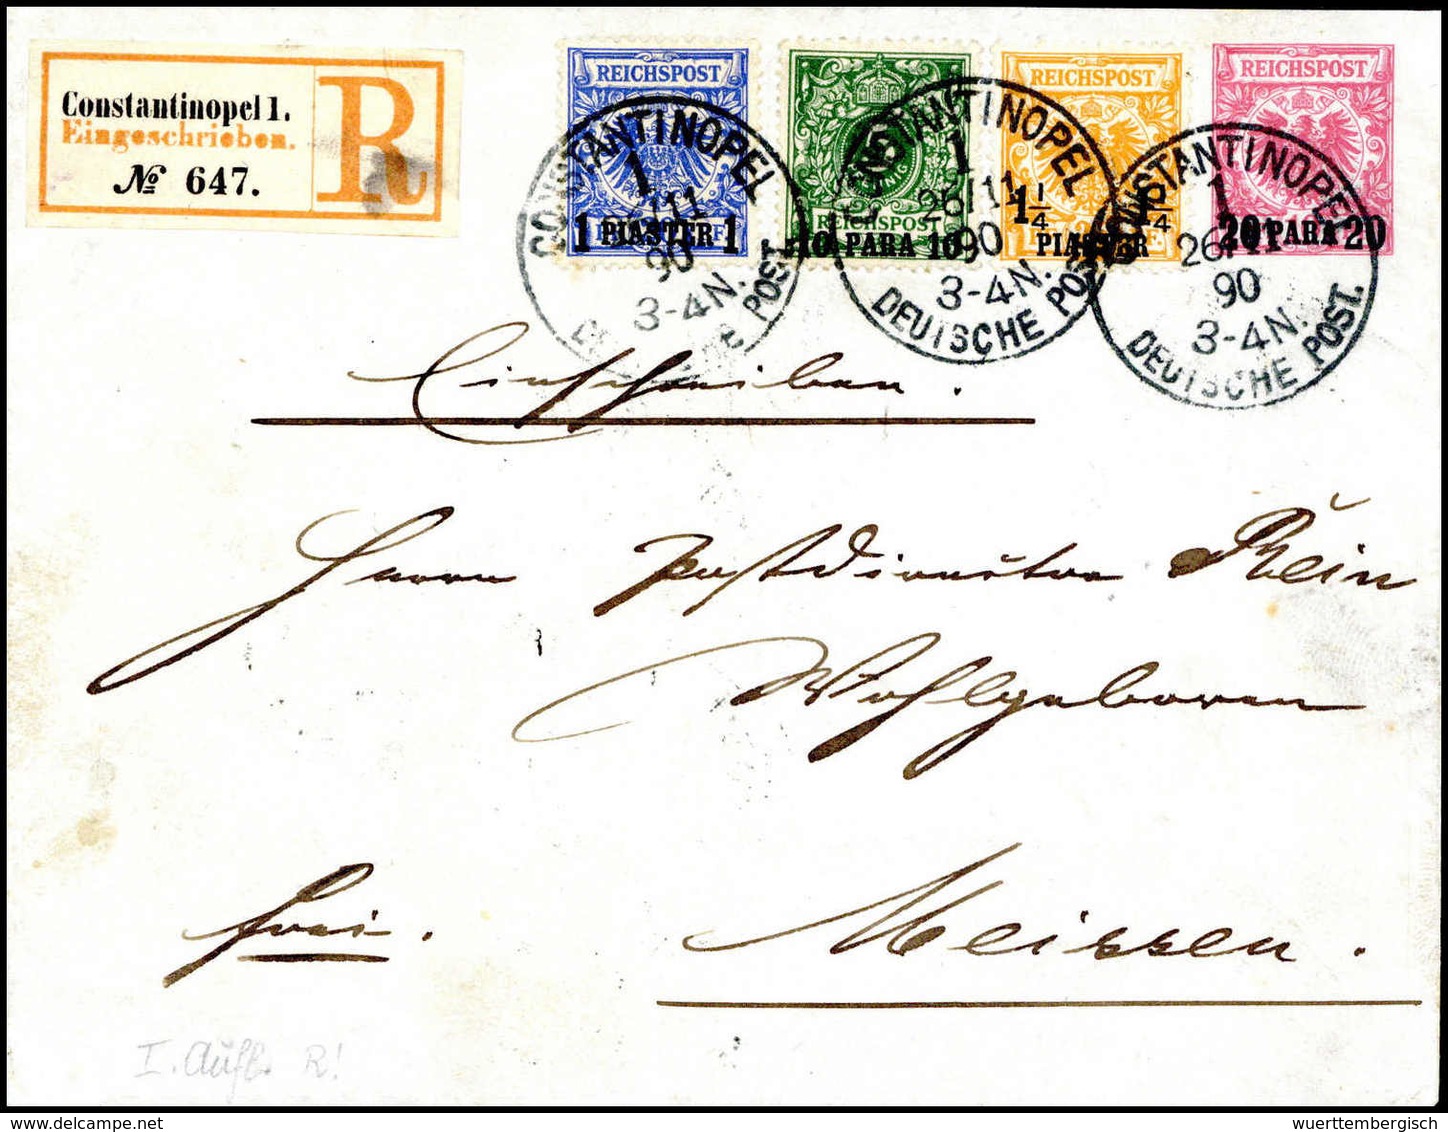 Constantinopel 1.
Eingeschrieben.
№ 647.
R
REICHSPOST
1 PIASTER 1
REICHSPOST
10 PARA 10
REICHSPOST
1 1/4 1 1/4
PIASTER
REICHSPOST
20 PARA 20
CONSTANTINOPEL
1
/11
90
3-4N.
DEUTSCHE POST.
CONSTANTINOPEL
1
26/11
90
3-4N.
DEUTSCHE POST.
CONSTANTINOPEL
1
26/11
90
3-4N.
DEUTSCHE POST.
Einschreiben.
Herrn Postdirector Rhein
Wohlgeboren
frei. Meissen.
I. Aufl. R!
wuerttembergisch